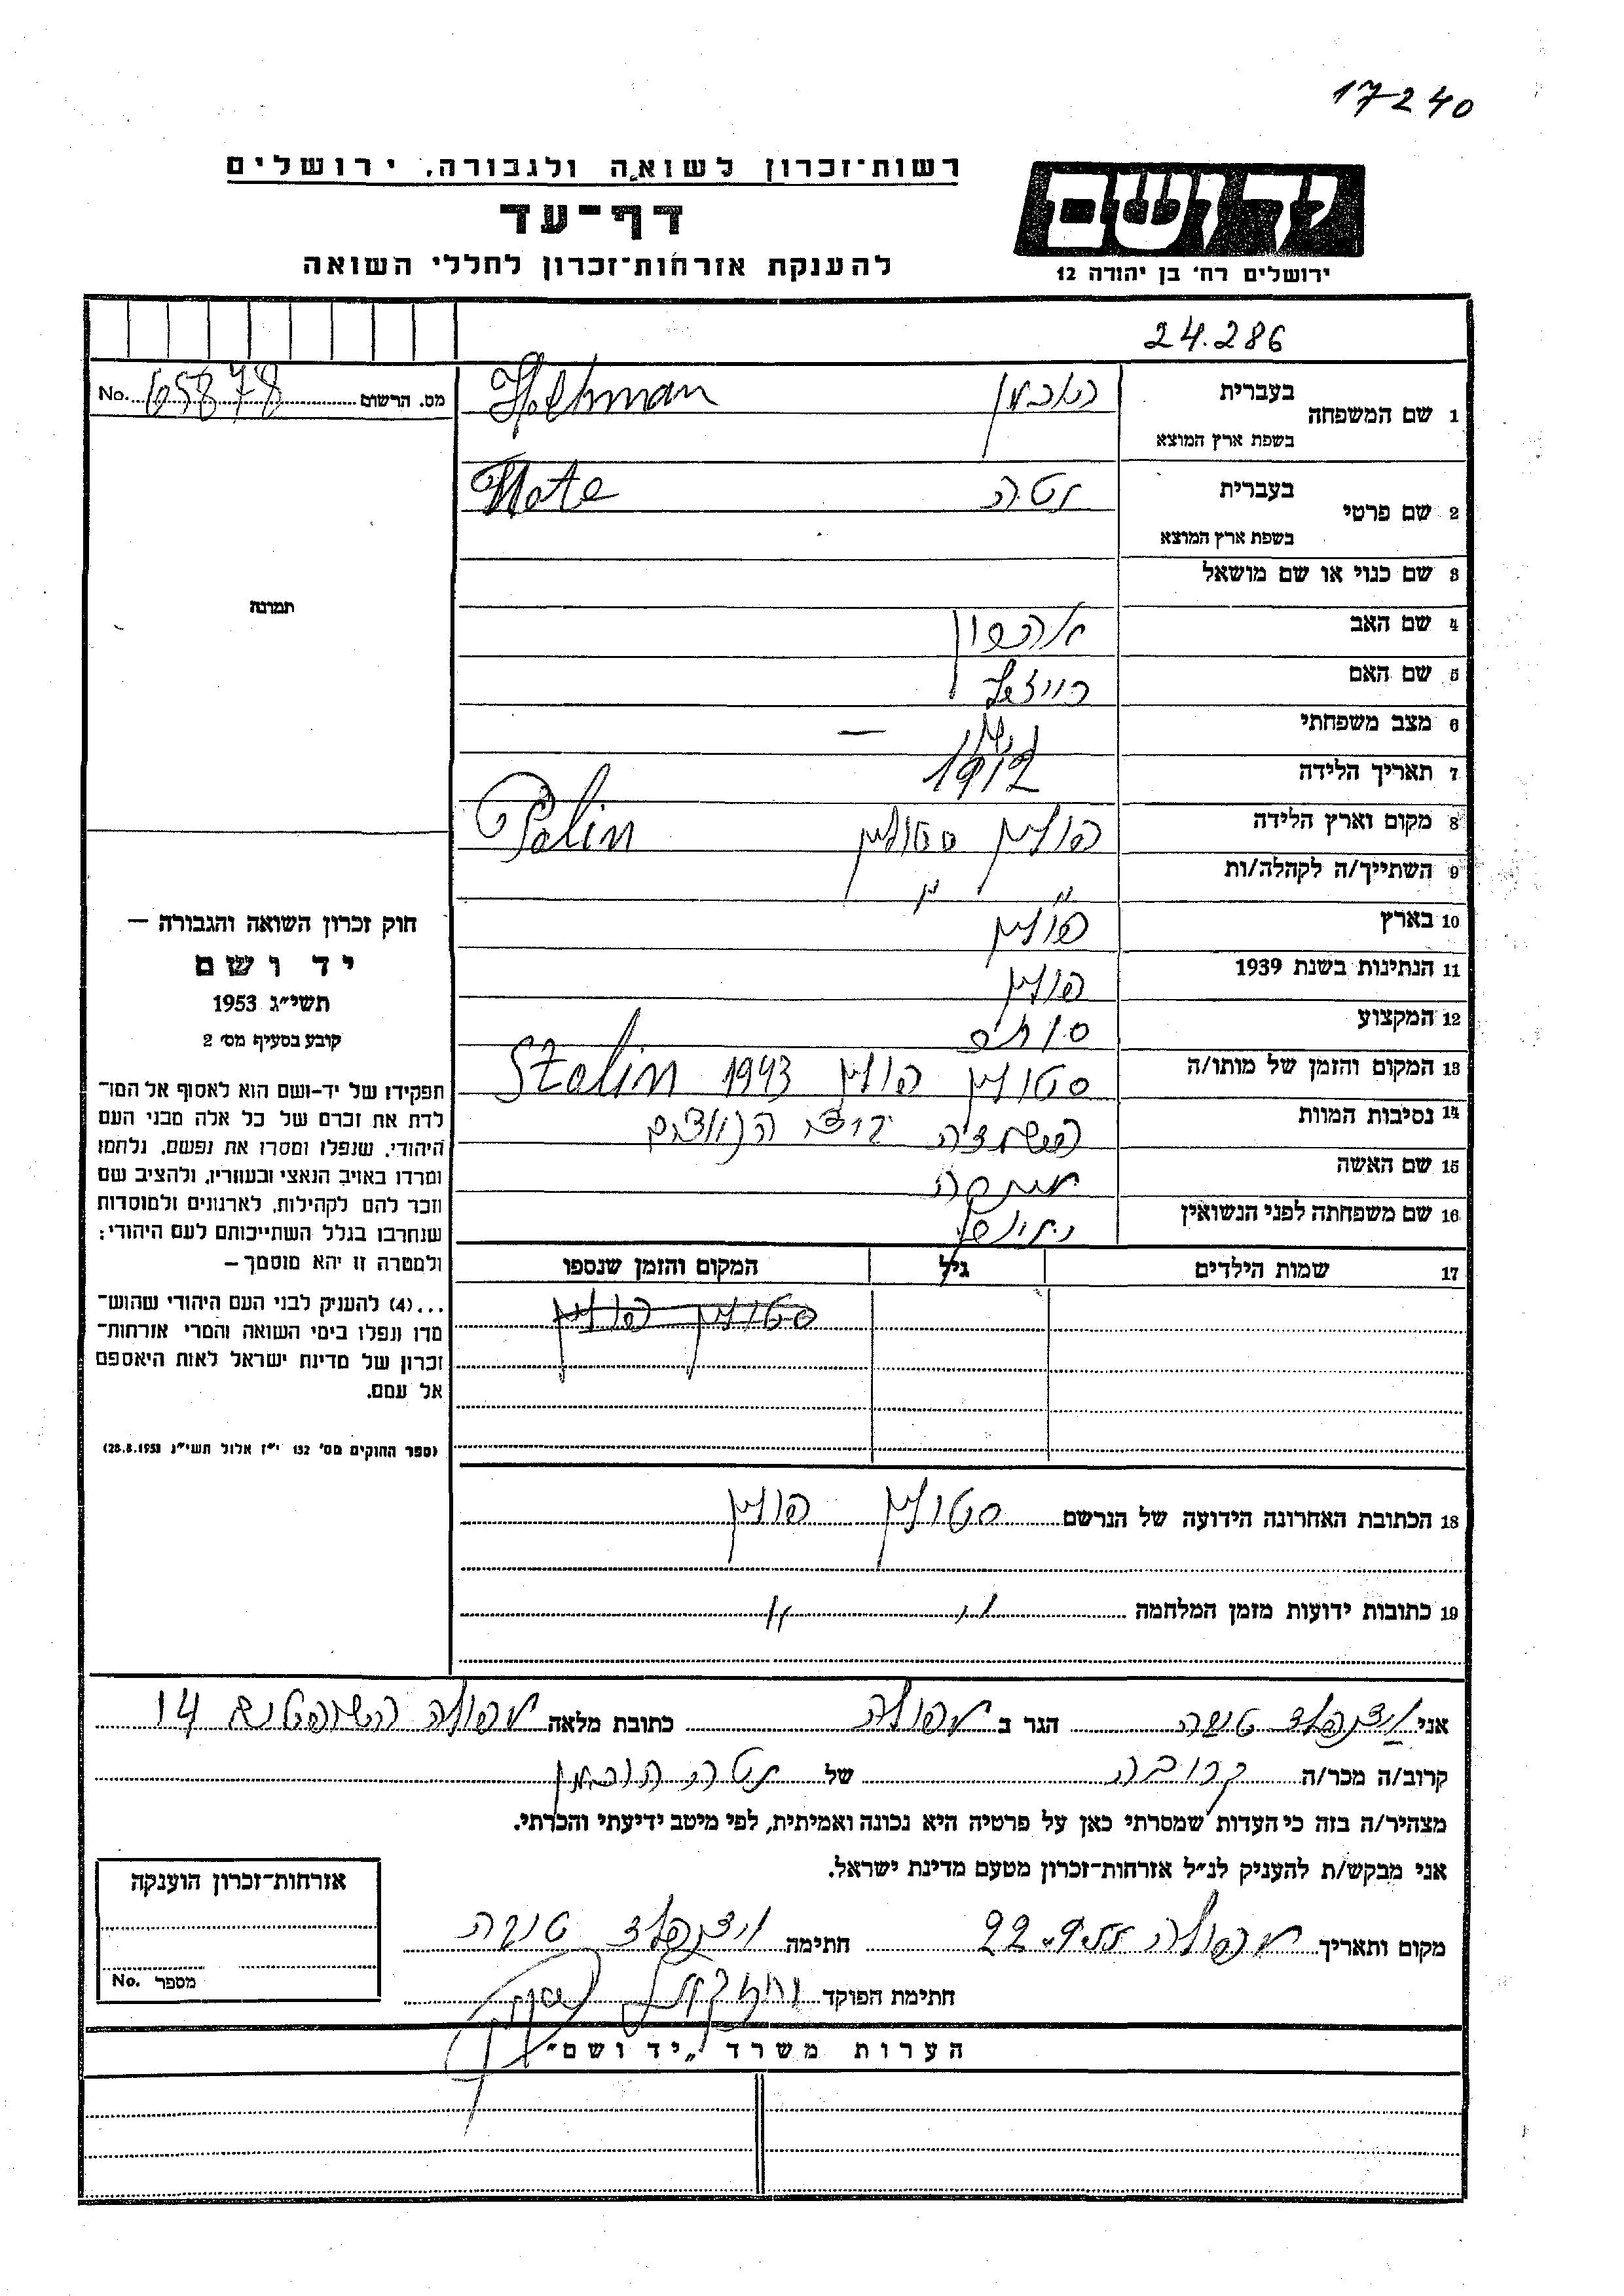 17240
רשות־זכרון לשואה ולגבורה, ירושלים
דף־עד
להענקת אזרחות־זכרון לחללי השואה
יד ושם
ירושלים רח' בן יהודה 12
24.286
No. 65878 מס. הרשום
1 שם המשפחה בעברית
Hohman
בשפת ארץ המוצא
2 שם פרטי בעברית נטה
Note
בשפת ארץ המוצא
3 שם כנוי או שם מושאל
תמונה
4 שם האב אהרון
5 שם האם רייזל
6 מצב משפחתי נשוי —
7 תאריך הלידה 1912
8 מקום וארץ הלידה פולין סטולין Polin
9 השתייך/ה לקהלה/ות " "
10 בארץ פולין
11 הנתינות בשנת 1939 פולין
12 המקצוע סוחר
13 המקום והזמן של מותו/ה סטולין פולין 1943 Stalin
14 נסיבות המוות הנאצים
15 שם האשה
16 שם משפחתה לפני הנשואין
17 שמות הילדים גיל המקום והזמן שנספו
סטולין פולין
18 הכתובת האחרונה הידועה של הנרשם סטולין פולין
19 כתובות ידועות מזמן המלחמה " "
חוק זכרון השואה והגבורה —
יד ושם
תשי"ג 1953
קובע בסעיף מס' 2
תפקידו של יד-ושם הוא לאסוף אל המו־
לדת את זכרם של כל אלה מבני העם
היהודי, שנפלו ומסרו את נפשם, נלחמו
ומרדו באויב הנאצי ובעוזריו, ולהציב שם
וזכר להם לקהילות, לארגונים ולמוסדות
שנחרבו בגלל השתייכותם לעם היהודי;
ולמטרה זו יהא מוסמך —
...(4) להעניק לבני העם היהודי שהוש־
מדו ונפלו בימי השואה והמרי אזרחות־
זכרון של מדינת ישראל לאות היאספם
אל עמם.
(ספר החוקים מס' 132 י"ז אלול תשי"ג 28.8.1953)
אני איזנפלד טובה הגר ב עפולה כתובת מלאה עפולה השופטים 14
קרוב/ה מכר/ה קרובה של נטה הוכמן
מצהיר/ה בזה כי העדות שמסרתי כאן על פרטיה היא נכונה ואמיתית, לפי מיטב ידיעתי והכרתי.
אני מבקש/ת להעניק לנ"ל אזרחות־זכרון מטעם מדינת ישראל.
מקום ותאריך עפולה 22.9.55 חתימה איזנפלד טובה
חתימת הפוקד
אזרחות־זכרון הוענקה
מספר No.
הערות משרד „יד ושם"